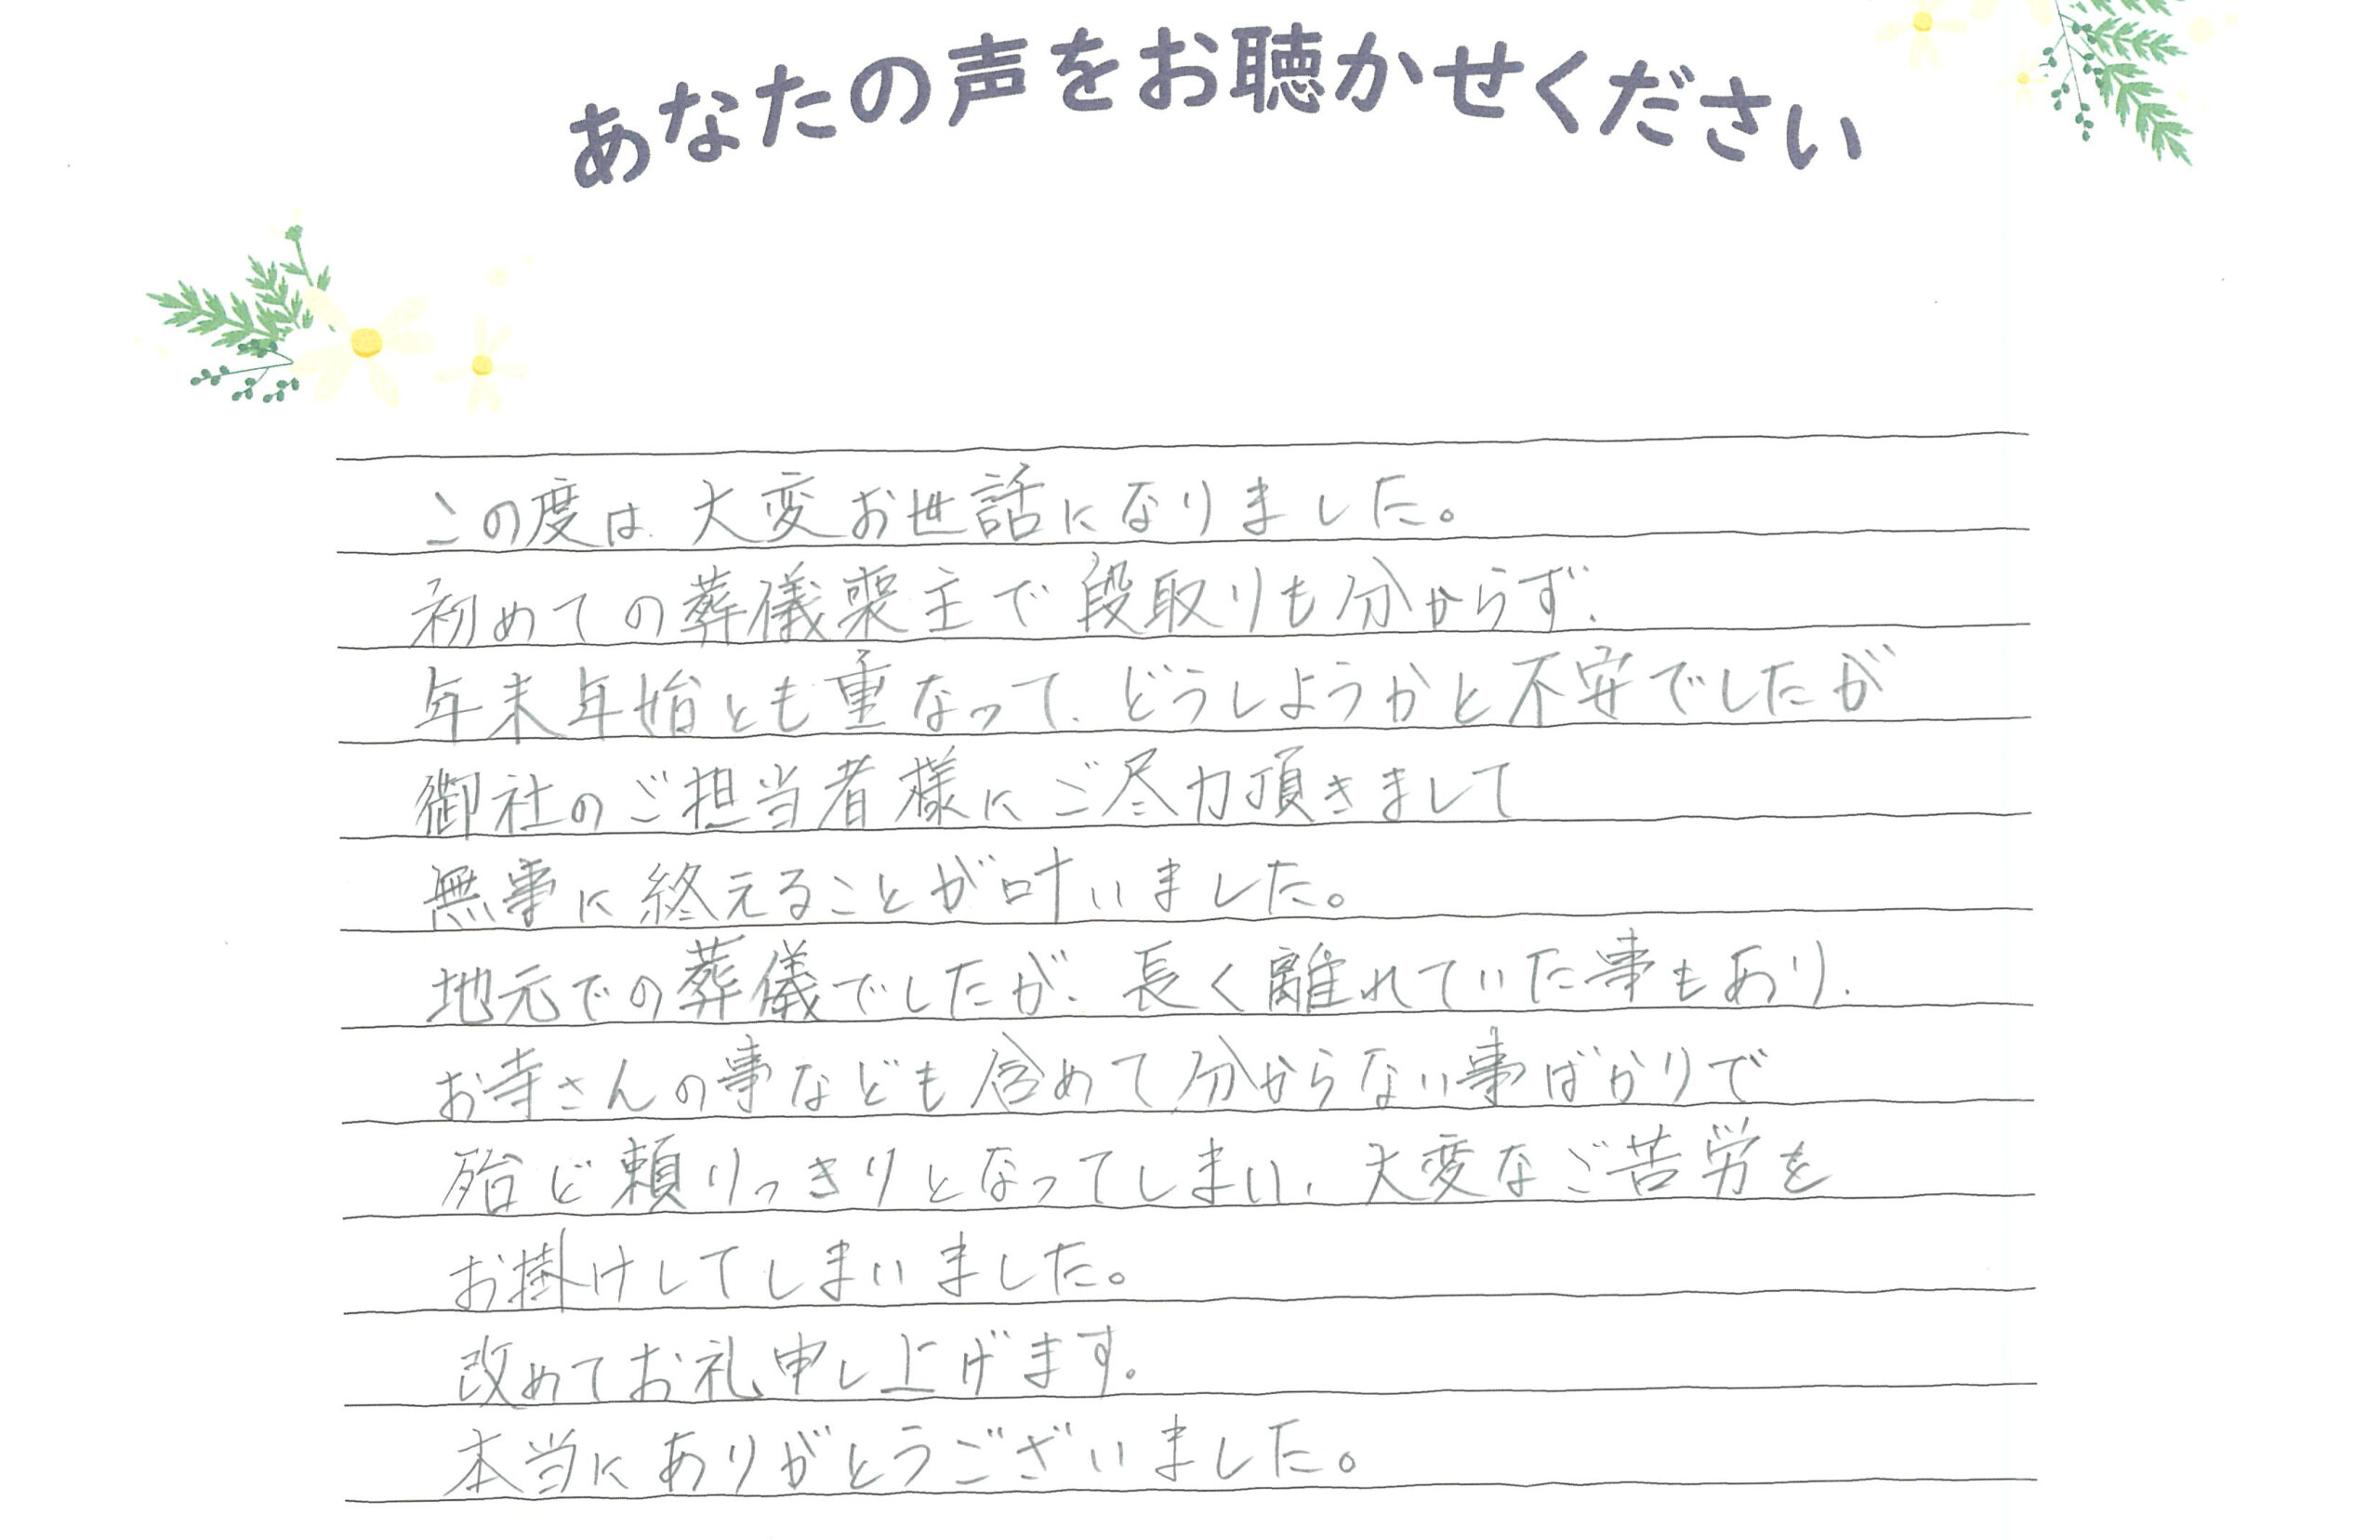 あなたの声をお聴かせください
この度は、大変お世話になりました。
初めての葬儀喪主で段取りも分からず、
年末年始とも重なって、どうしようかと不安でしたが
御社のご担当者様にご尽力頂きまして
無事に終えることが叶いました。
地元での葬儀でしたが、長く離れていた事もあり、
お寺さんの事なども含めて分からない事ばかりで
殆ど頼りっきりとなってしまい、大変なご苦労を
お掛けしてしまいました。
改めてお礼申し上げます。
本当にありがとうございました。